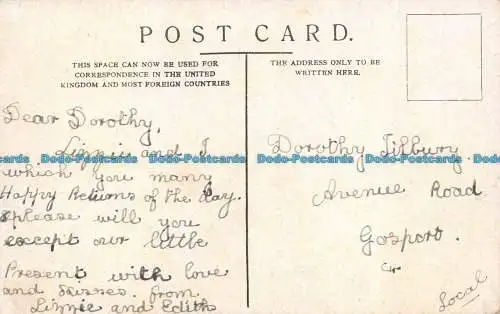 POST CARD.
THIS SPACE CAN NOW BE USED FOR
CORRESPONDENCE IN THE UNITED
KINGDOM AND MOST FOREIGN COUNTRIES
THE ADDRESS ONLY TO BE
WRITTEN HERE.
Dear Dorothy,
Lizzie and I
which you many
Happy Returns of the day.
please will you
except our little
Present with love
and kisses. from
Lizzie and Edith
Dorothy Tilbury
Avenue Road
Gosport.
Local
Bodo-Postcards